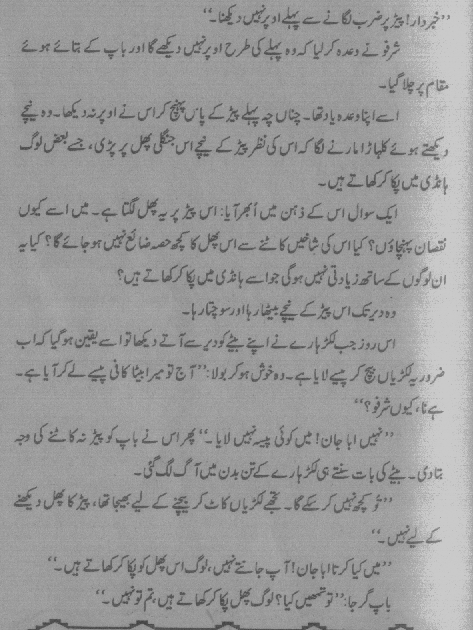 ”خبردار! پیڑ پر ضرب لگانے سے پہلے اوپر نہیں دیکھنا۔“
شرفو نے وعدہ کر لیا کہ وہ پہلے کی طرح اوپر نہیں دیکھے گا اور باپ کے بتائے ہوئے
مقام پر چلا گیا۔
اسے اپنا وعدہ یاد تھا۔ چناں چہ پہلے پیڑ کے پاس پہنچ کر اس نے اوپر نہ دیکھا۔ وہ نیچے
دیکھتے ہوئے کلہاڑا مارنے لگا کہ اس کی نظر پیڑ کے نیچے اس جنگلی پھل پر پڑی، جسے بعض لوگ
ہانڈی میں پکا کر کھاتے ہیں۔
ایک سوال اس کے ذہن میں اُبھر آیا: اس پیڑ پر یہ پھل لگتا ہے۔ میں اسے کیوں
نقصان پہنچاؤں؟ کیا اس کی شاخیں کاٹنے سے اس پھل کا کچھ حصہ ضائع نہیں ہو جائے گا؟ کیا یہ
ان لوگوں کے ساتھ زیادتی نہیں ہوگی جو اسے ہانڈی میں پکا کر کھاتے ہیں؟
وہ دیر تک اس پیڑ کے نیچے بیٹھا رہا اور سوچتا رہا۔
اس روز جب لکڑہارے نے اپنے بیٹے کو دیر سے آتے دیکھا تو اسے یقین ہو گیا کہ اب
ضرور یہ لکڑیاں بیچ کر پیسے لایا ہے۔ وہ خوش ہو کر بولا: ”آج تو میرا بیٹا کافی پیسے لے کر آیا ہے۔
ہے نا، کیوں شرفو؟“
”نہیں ابا جان! میں کوئی پیسہ نہیں لایا۔“ پھر اس نے باپ کو پیڑ نہ کاٹنے کی وجہ
بتا دی۔ بیٹے کی بات سنتے ہی لکڑہارے کے تن بدن میں آگ لگ گئی۔
”تُو کچھ نہیں کر سکے گا۔ تجھے لکڑیاں کاٹ کر بیچنے کے لیے بھیجا تھا، پیڑ کا پھل دیکھنے
کے لیے نہیں۔“
”میں کیا کرتا ابا جان! آپ جانتے نہیں، لوگ اس پھل کو پکا کر کھاتے ہیں۔“
باپ گرجا: ”تو تمھیں کیا؟ لوگ پھل پکا کر کھاتے ہیں، تم تو نہیں۔“